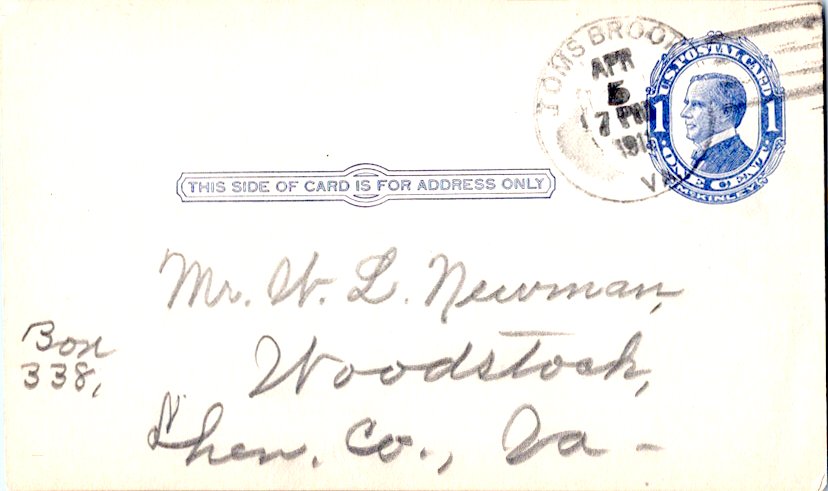 TOMS BROOK
APR
5
7 PM
VA
U.S. POSTAL CARD
1 1
ONE CENT
McKINLEY
THIS SIDE OF CARD IS FOR ADDRESS ONLY
Mr. W. L. Newman,
Woodstock,
Shen. Co., Va –
Box
338,